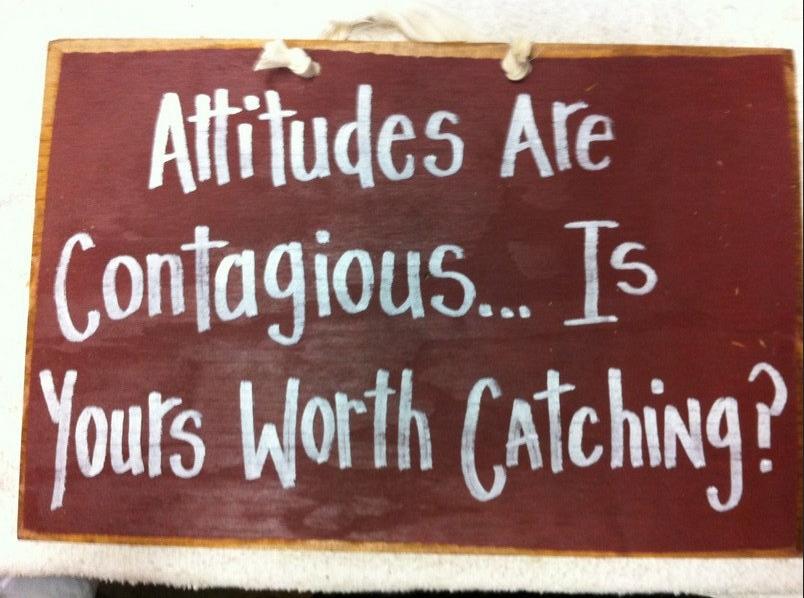 Attitudes Are
Contagious... Is
Yours Worth Catching?